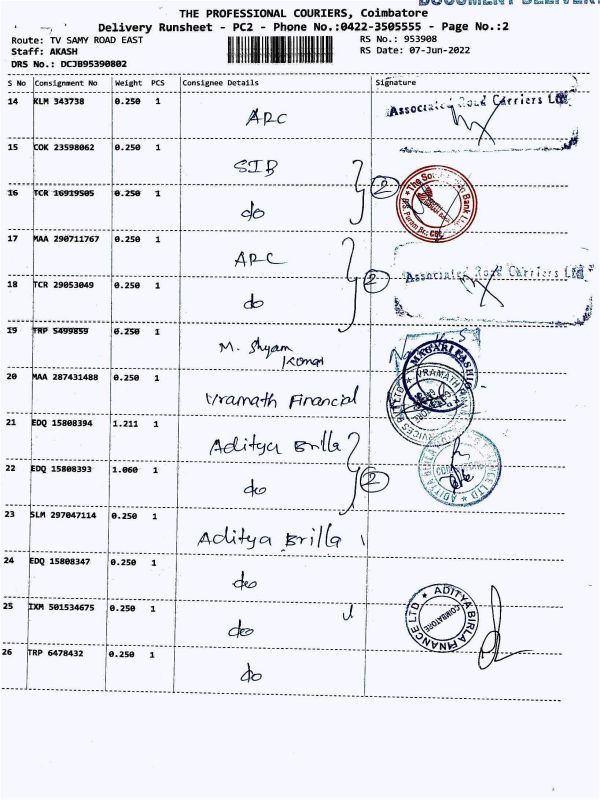 DOCUMENT DELIVERY
THE PROFESSIONAL COURIERS, Coimbatore
Delivery Runsheet - PC2 - Phone No.:0422-3505555 - Page No.:2
Route: TV SAMY ROAD EAST RS No.: 953908
Staff: AKASH RS Date: 07-Jun-2022
DRS No.: DCJB95390802
S No Consignment No Weight PCS Consignee Details Signature
14 KLM 343738 0.250 1 ARC Associated Road Carriers Ltd
15 COK 23598062 0.250 1 SIB
16 TCR 16919505 0.250 1 do 2 The South Indian Bank
17 MAA 290711767 0.250 1 ARC
18 TCR 29053049 0.250 1 do 2 Associated Road Carriers Ltd
19 TRP 5499859 0.250 1 M. Shyam
Kumar
20 MAA 287431488 0.250 1 Vramath Financial FASHION VRAMATH SERVICES
21 EDQ 15808394 1.211 1 Aditya Brilla
22 EDQ 15808393 1.060 1 do 2 ADITYA BIRLA FINANCE LTD COIMBATORE
23 SLM 297047114 0.250 1 Aditya Brilla
24 EDQ 15808347 0.250 1 do
25 IXM 501534675 0.250 1 do ADITYA BIRLA FINANCE LTD COIMBATORE
26 TRP 6478432 0.250 1 do